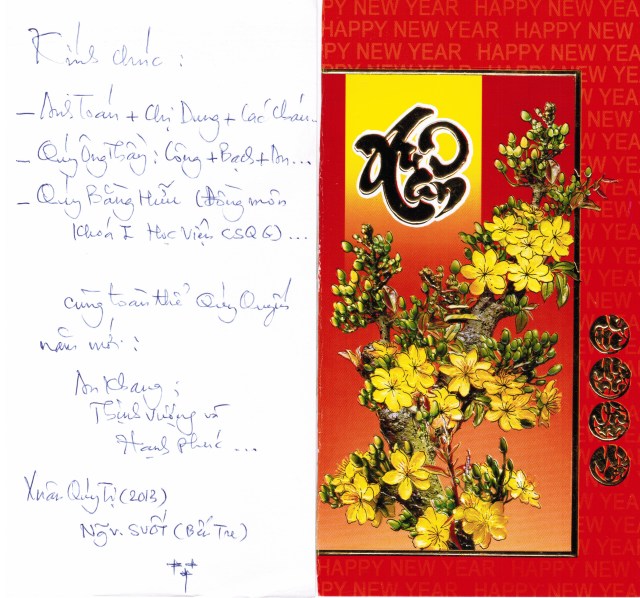 Kính chúc :
– Anh Toán + Chị Dung + Các cháu...
– Quý Ông Thầy : Công + Bạch + An...
– Quý Bằng Hữu (Đồng môn
Khoá I Học Viện CSQG) ...
cùng toàn thể Quý Quyến
năm mới :
An Khang ;
Thịnh Vượng và
Hạnh phúc ...
Xuân Quý Tị (2013)
Ng.v. SUỐT (Bến Tre)
HAPPY NEW YEAR HAPPY NEW YEAR
HAPPY NEW YEAR HAPPY NEW YEAR
Xuân
HAPPY NEW YEAR HAPPY NEW YEAR
HAPPY NEW YEAR HAPPY NEW YEAR